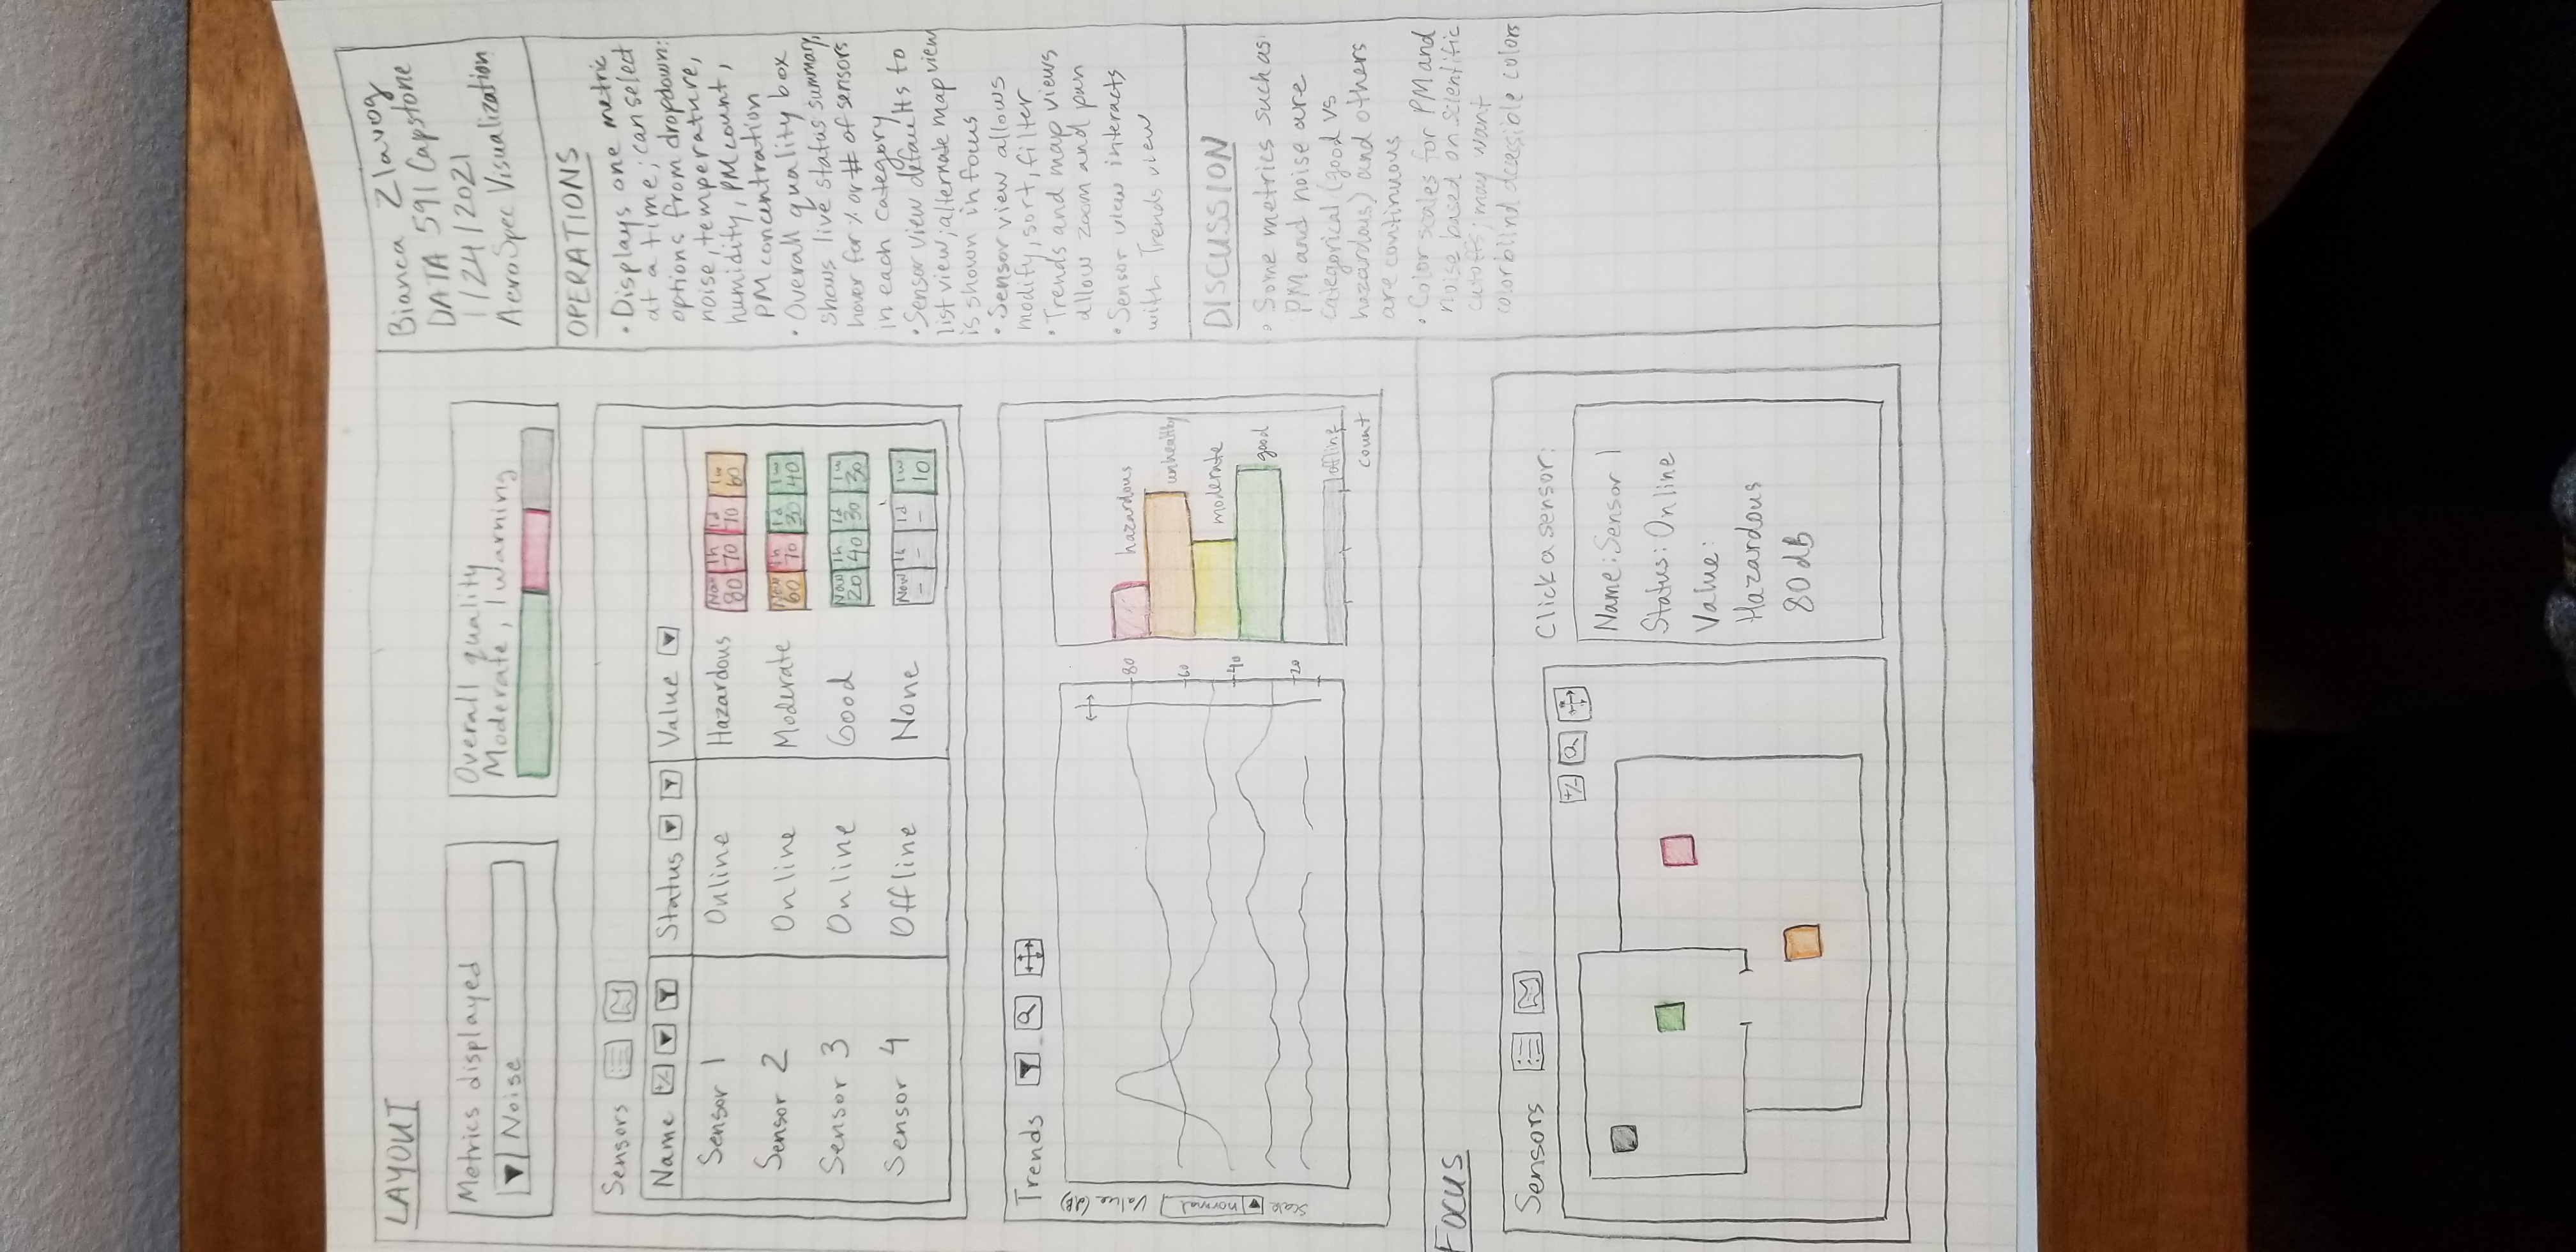 LAYOUT
Metrics displayed
Noise
Overall quality
Moderate, 1 warning
Sensors
Name +/- Status Value
Sensor 1 Online Hazardous Now 80 1h 70 1d 70 1w 60
Sensor 2 Online Moderate Now 60 1h 70 1d 30 1w 40
Sensor 3 Online Good Now 20 1h 40 1d 30 1w 30
Sensor 4 Offline None Now - 1h - 1d - 1w 10
Trends
Scale normal Value (dB)
80
60
40
20
hazardous
unhealthy
moderate
good
offline
count
FOCUS
Sensors
+/-
Click a sensor:
Name: Sensor 1
Status: Online
Value:
Hazardous
80 dB
Bianca Zlavog
DATA 591 Capstone
1/24/2021
AeroSpec Visualization
OPERATIONS
• Displays one metric
at a time; can select
options from dropdown:
noise, temperature,
humidity, PM count,
PM concentration
• Overall quality box
shows live status summary,
hover for % or # of sensors
in each category
• Sensor view defaults to
list view; alternate map view
is shown in focus
• Sensor view allows
modify, sort, filter
• Trends and map views
allow zoom and pan
• Sensor view interacts
with Trends view
DISCUSSION
• Some metrics such as
PM and noise are
categorical (good vs
hazardous) and others
are continuous
• Color scales for PM and
noise based on scientific
cutoffs; may want
colorblind accessible colors